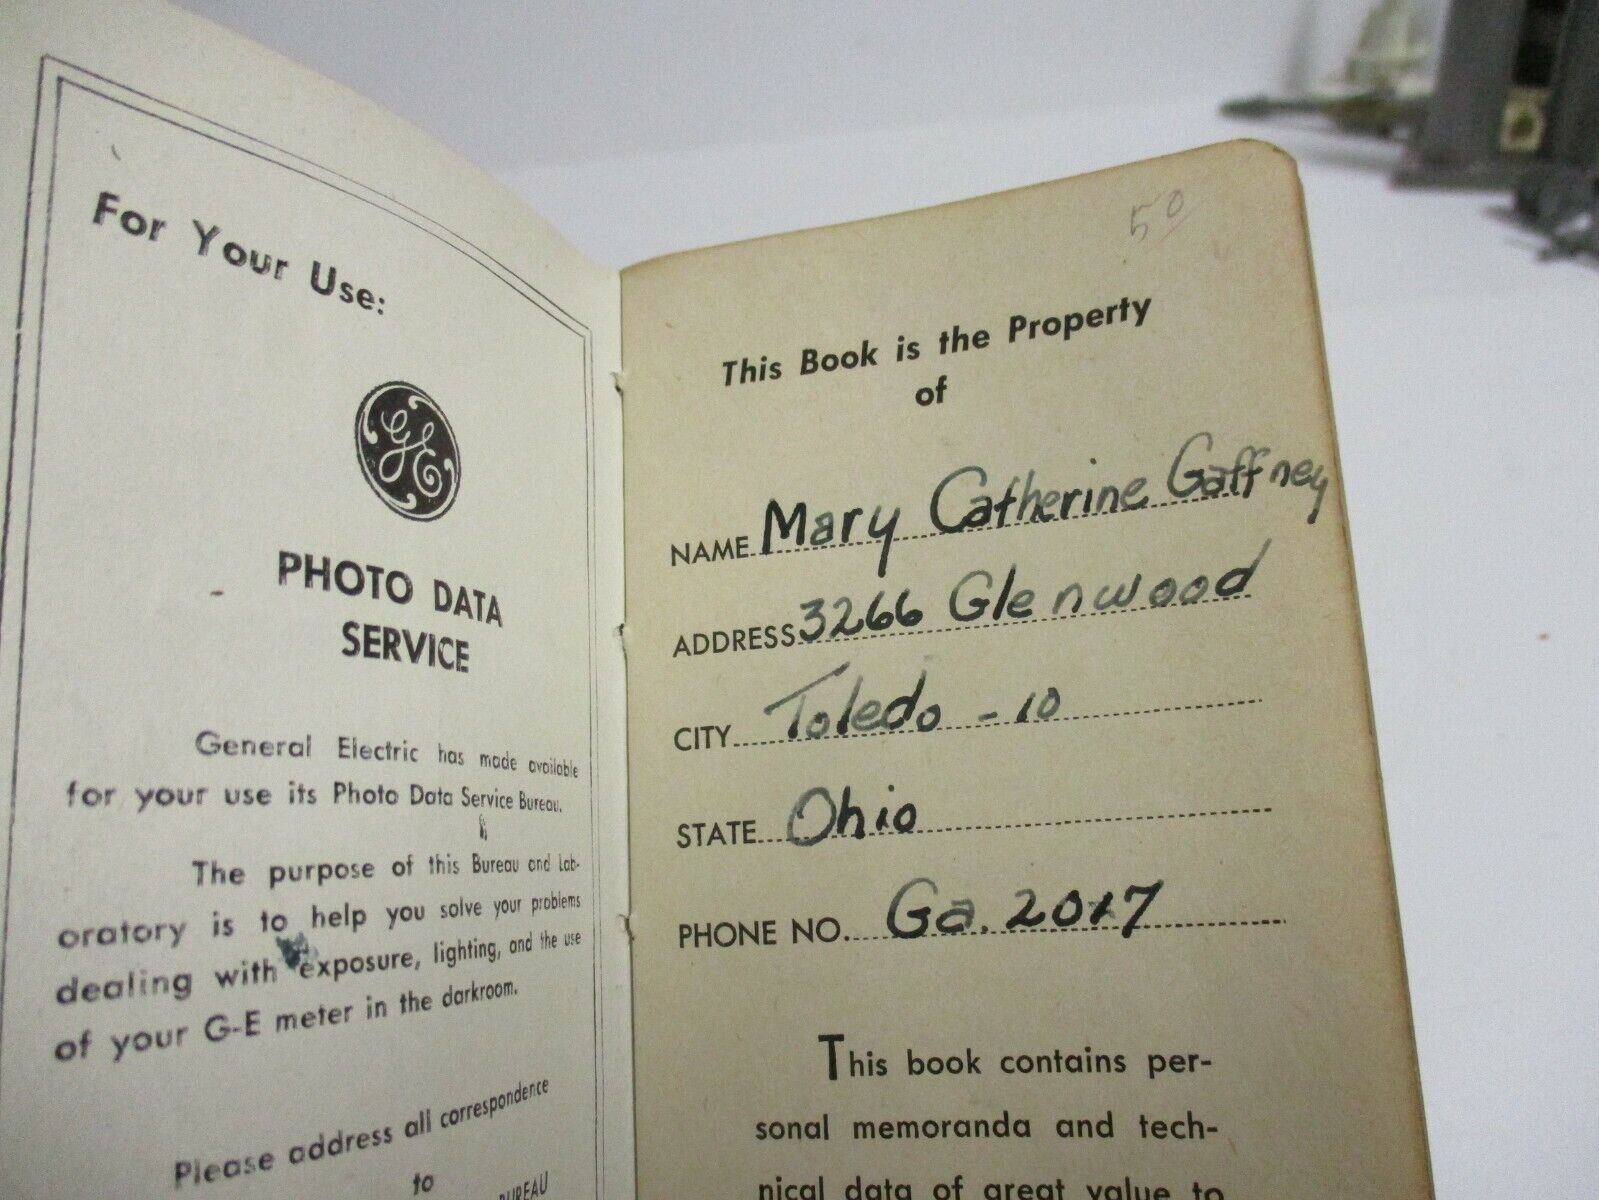 For Your Use:
GE
PHOTO DATA
SERVICE
General Electric has made available
for your use its Photo Data Service Bureau.
The purpose of this Bureau and Lab-
oratory is to help you solve your problems
dealing with exposure, lighting, and the use
of your G-E meter in the darkroom.
Please address all correspondence
to
BUREAU
50
This Book is the Property
of
NAME Mary Catherine Gaffney
ADDRESS 3266 Glenwood
CITY Toledo - 10
STATE Ohio
PHONE NO. Ga. 2017
This book contains per-
sonal memoranda and tech-
nical data of great value to